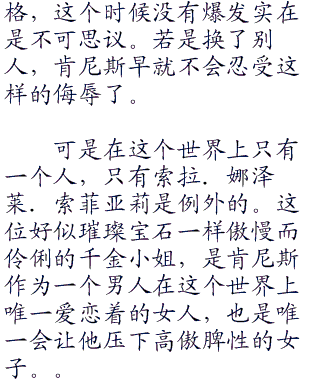 格，这个时候没有爆发实在
是不可思议。若是换了别
人，肯尼斯早就不会忍受这
样的侮辱了。
可是在这个世界上只有
一个人，只有索拉．娜泽
莱．索菲亚莉是例外的。这
位好似璀璨宝石一样傲慢而
伶俐的千金小姐，是肯尼斯
作为一个男人在这个世界上
唯一爱恋着的女人，也是唯
一会让他压下高傲脾性的女
子。。